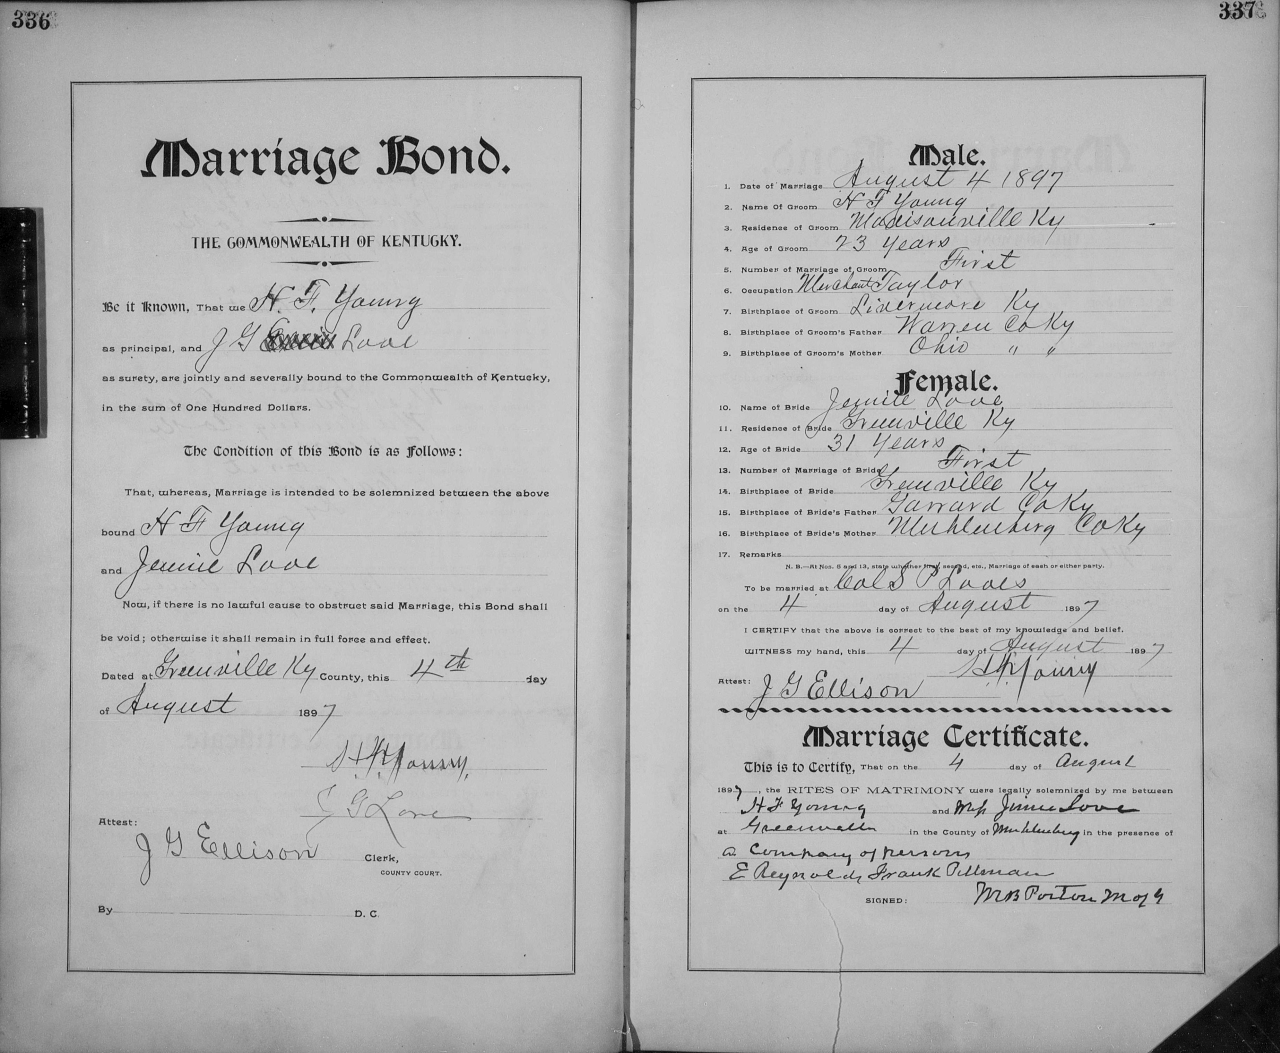 336
Marriage Bond.
THE COMMONWEALTH OF KENTUCKY.
Be it Known, That we H. F. Young
as principal, and J G Love
as surety, are jointly and severally bound to the Commonwealth of Kentucky,
in the sum of One Hundred Dollars.
The Condition of this Bond is as Follows:
That, whereas, Marriage is intended to be solemnized between the above
bound H F Young
and Jennie Love
Now, if there is no lawful cause to obstruct said Marriage, this Bond shall
be void; otherwise it shall remain in full force and effect.
Dated at Greenville Ky County, this 4th day
of August 1897
H F Young
J G Love
Attest:
J G Ellison Clerk,
COUNTY COURT.
By D. C.
337
Male.
1. Date of Marriage August 4 1897
2. Name Of Groom H F Young
3. Residence of Groom Madisonville Ky
4. Age of Groom 23 Years
5. Number of Marriage of Groom First
6. Occupation Merchant Taylor
7. Birthplace of Groom Livermore Ky
8. Birthplace of Groom's Father Warren Co Ky
9. Birthplace of Groom's Mother Ohio " "
Female.
10. Name of Bride Jennie Love
11. Residence of Bride Greenville Ky
12. Age of Bride 31 Years
13. Number of Marriage of Bride First
14. Birthplace of Bride Greenville Ky
15. Birthplace of Bride's Father Garrard Co Ky
16. Birthplace of Bride's Mother Muhlenberg Co Ky
17. Remarks
N. B.—At Nos. 5 and 13, state whether first, second, etc., Marriage of each or either party.
To be married at Col S P Loves
on the 4 day of August 1897
I CERTIFY that the above is correct to the best of my knowledge and belief.
WITNESS my hand, this 4 day of August 1897
H F Young
Attest: J G Ellison
Marriage Certificate.
This is to Certify, That on the 4 day of August
1897, the RITES OF MATRIMONY were legally solemnized by me between
H F Young and Miss Jinnie Love
at Greenville in the County of Muhlenberg in the presence of
a Company of persons
E Reynolds, Frank Pillman
SIGNED: M B Porton